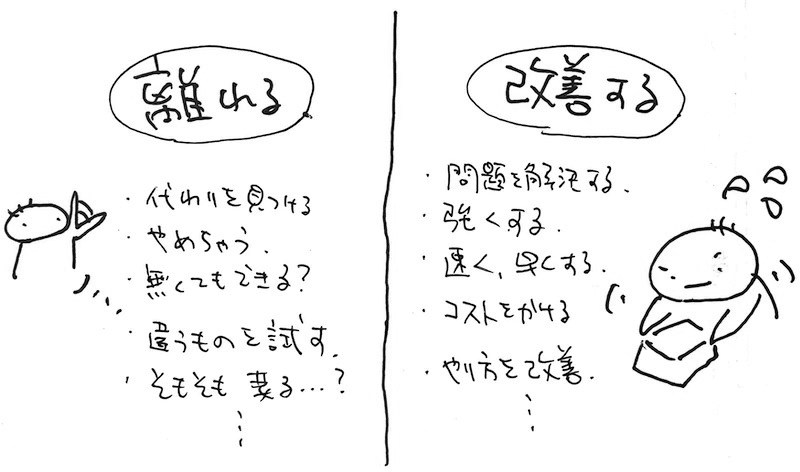 離れる
・代わりを見つける
・やめちゃう.
・無くてもできる?
・違うものを試す.
・そもそも 要る…?
改善する
・問題を解決する.
・強くする.
・速く,早くする.
・コストをかける
・やり方を改善.